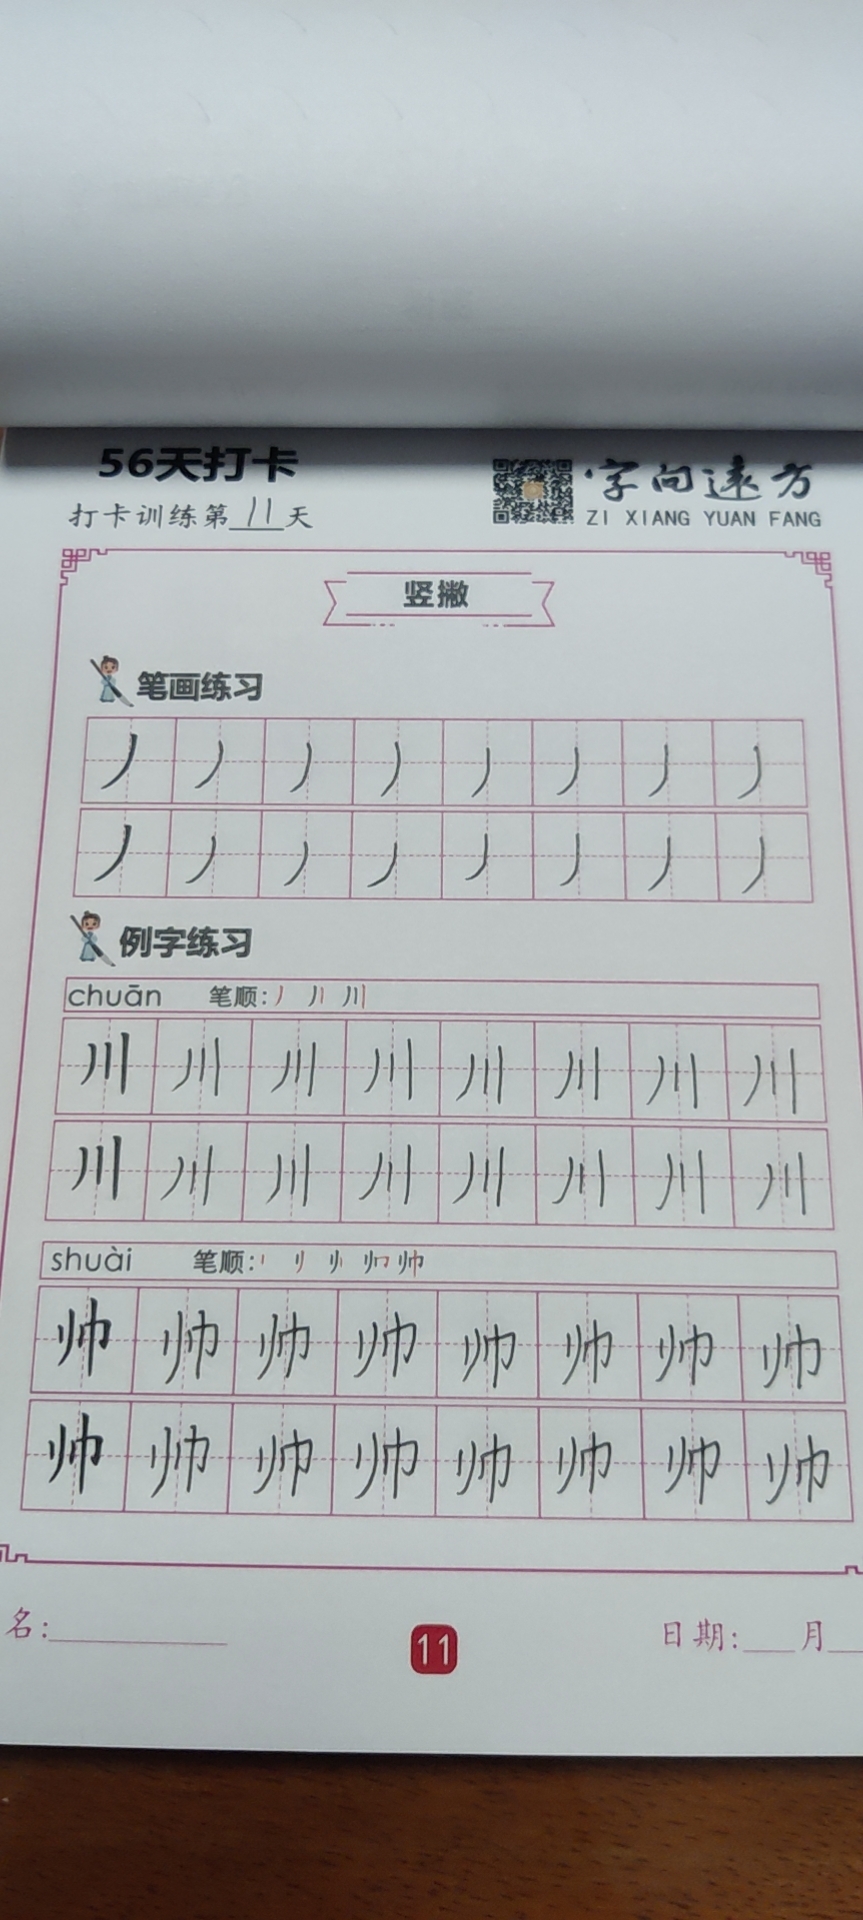 56天打卡
打卡训练第11天
字向远方
ZI XIANG YUAN FANG
竖撇
笔画练习
丿 丿 丿 丿 丿 丿 丿 丿
丿 丿 丿 丿 丿 丿 丿 丿
例字练习
chuān 笔顺:丿 丿丨 川
川 川 川 川 川 川 川 川
川 川 川 川 川 川 川 川
shuài 笔顺:
帅 帅 帅 帅 帅 帅 帅 帅
帅 帅 帅 帅 帅 帅 帅 帅
名:
11
日期:
月